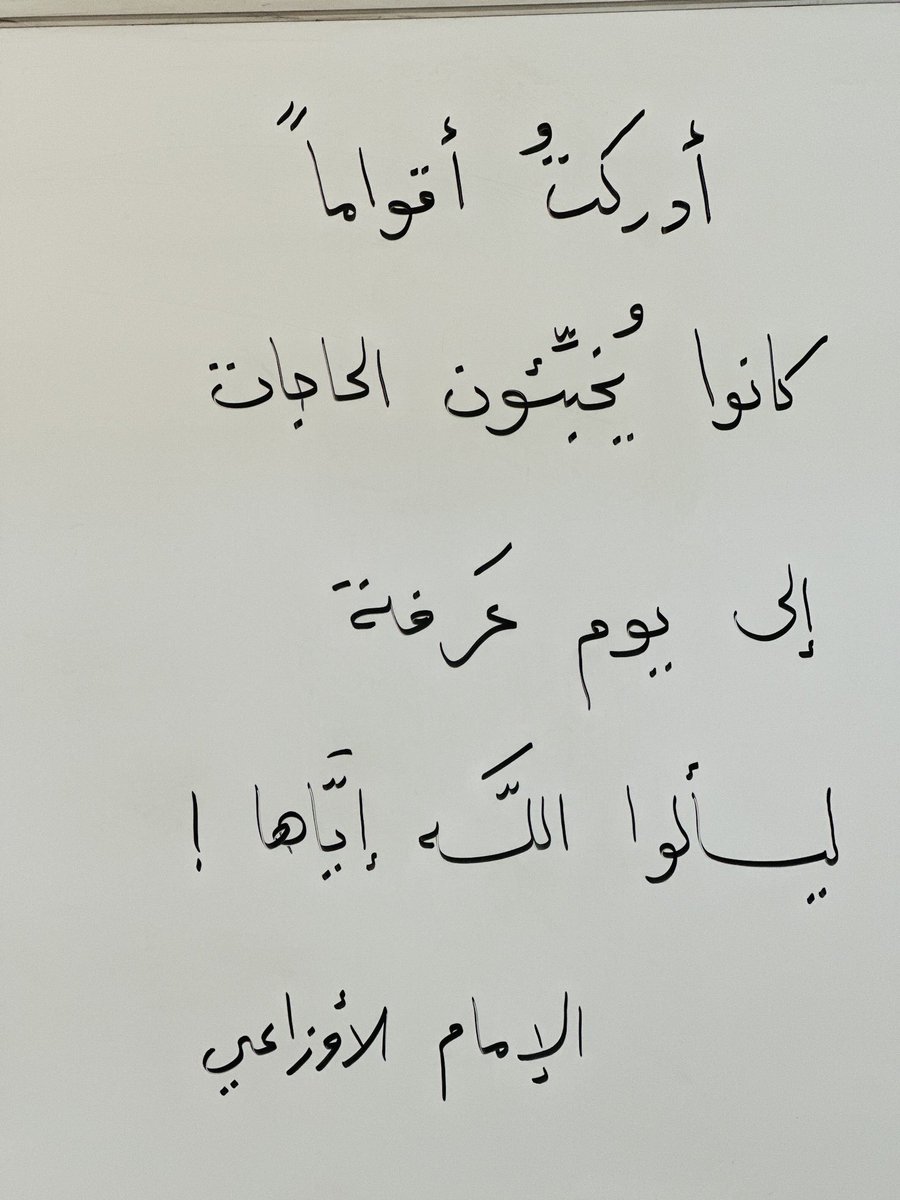 أدركتُ أقواماً
كانوا يُخبّئون الحاجات
إلى يوم عَرفة
ليسألوا اللَّه إيَّاها !
الإمام الأوزاعي